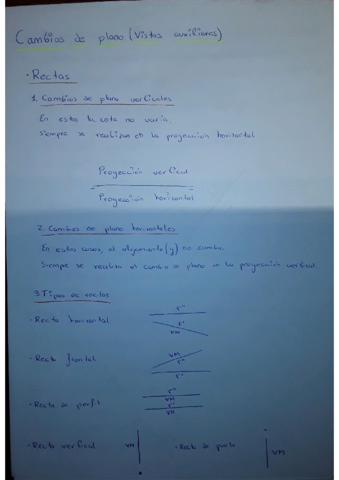 Cambios de plano (Vistas auxiliares)
· Rectas
1. Cambios de plano verticales
En esta la cota no varía.
Siempre se realizan en la proyección horizontal
Proyección vertical
Proyección horizontal
2. Cambios de plano horizontales
En estos casos, el alejamiento (y) no cambia.
Siempre se realiza el cambio de plano en la proyección vertical.
3. Tipos de rectas
· Recta horizontal
r''
r'
VM
· Recta frontal
VM
r''
r'
· Recta de perfil
r''
VM
r'
VM
· Recta vertical
VM
· Recta de punta
VM